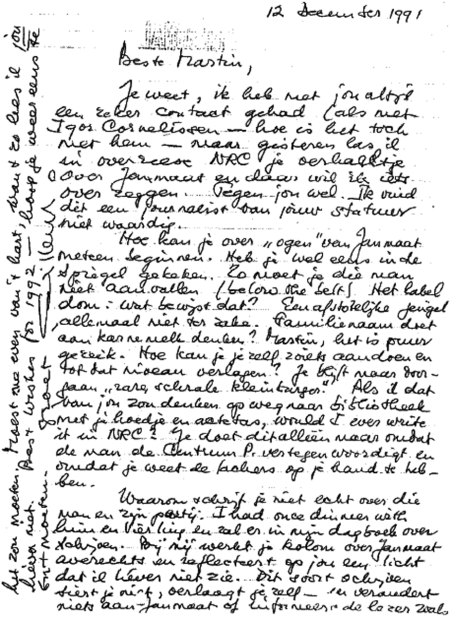 12 December 1991
Beste Martin,
Je weet, ik heb met jou altijd
een zeker contact gehad (als met
Igor Cornelissen — hoe is het toch
met hem — maar gisteren las ik
in overzeese NRC je verhaaltje
over Janmaat en daar wil ik iets
over zeggen. Tegen jou wel. Ik vind
dit een journalist van jouw statuur
niet waardig.
Hoe kan je over „ogen" van Janmaat
meteen beginnen. Heb je wel eens in de
spiegel gekeken. Zo moet je die man
niet aanvallen (below the belt). Het
dom: wat bewijst dat? Een afstotelijke
allemaal niet ter zake. Familienaam doet
aan karnemelk denken? Martin, het is puur
gezeik. Hoe kan je jezelf zoiets aandoen en
tot dat niveau verlagen? Je blijft maar door-
gaan „zure, schrale kleinburger". Als ik dat
van jou zou denken op weg naar bibliotheek
met je hoedje en aktetas, would I ever write
it in NRC? Je doet dit alleen maar omdat
de man de Centrum P. vertegenwoordigt en
omdat je weet de lachers op je hand te heb-
ben.
Waarom schrijf je niet echt over die
man en zijn partij. I had once dinner with
him en en zal er in mijn dagboek over
schrijven. Bij mij werkt je kolom over Janmaat
averechts en reflecteert op jou een licht
dat ik liever niet zie. Dit soort schrijven
siert je niet, verlaagt je zelf — en verandert
niets aan Janmaat of informeert de lezer zoals
het zou moeten. Moest me even van 't hart, want zo lees ik jou
liever niet. Best wishes for 1992 — hoop je weer eens te
ontmoeten. groet